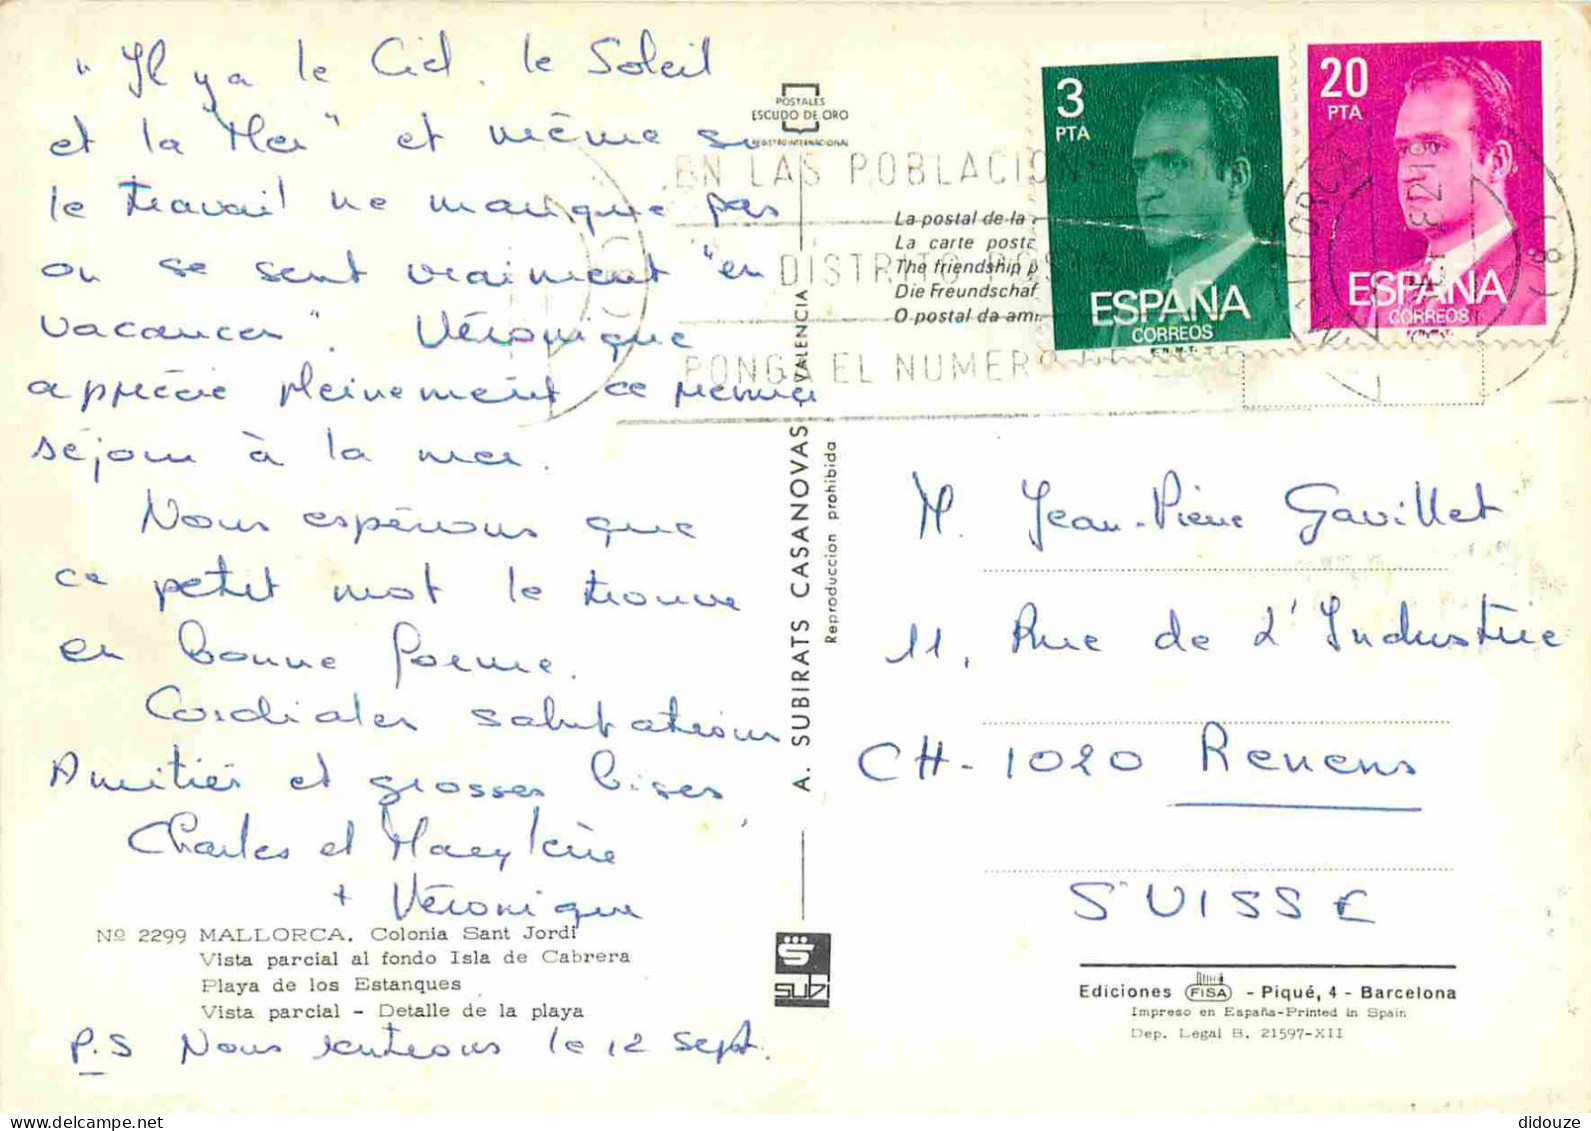 " Il y a le Ciel, le Soleil
et la Mer " et même si
le travail ne manque pas
on se sent vraiment "en
vacances". Véronique
apprécie pleinement ce premier
séjour à la mer.
Nous espérons que
ce petit mot te trouve
en bonne forme.
Cordiales salutations
Amitiés et grosses bises
Charles et
+ Véronique
Nº 2299 MALLORCA. Colonia Sant Jordi
Vista parcial al fondo Isla de Cabrera
Playa de los Estanques
Vista parcial - Detalle de la playa
P.S Nous rentrons le 12 sept.
POSTALES
ESCUDO DE ORO
REGISTRO INTERNACIONAL
EN LAS POBLACION
DISTRITO POSTA
PONGA EL NUMERO
La postal de la
La carte posta
The friendship p
Die Freundschaf
O postal da ami
A. SUBIRATS CASANOVAS - VALENCIA
Reproducción prohibida
SUBI
3
PTA
ESPAÑA
CORREOS
F.N.M.T.
20
PTA
ESPAÑA
CORREOS
F.N.M.T.
M. Jean-Pierre Gavillet
11, Rue de l'Industrie
CH-1020 Renens
SUISSE
Ediciones FISA - Piqué, 4 - Barcelona
Impreso en España-Printed in Spain
Dep. Legal B. 21597-XII
didouze